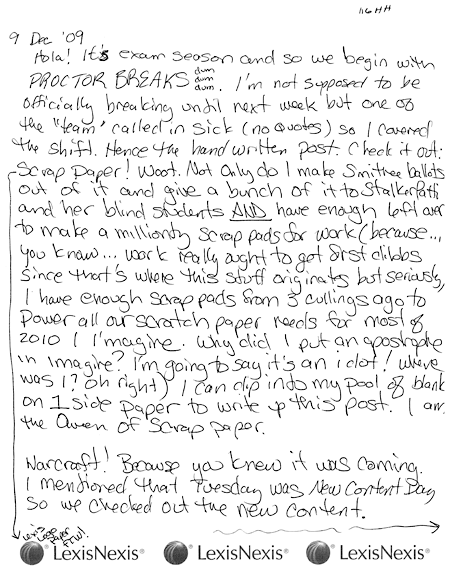 116HH
9 Dec '09
Hola! It's exam season and so we begin with
PROCTOR BREAKS dum dum dum. I'm not supposed to be
officially breaking until next week but one of
the "team" called in sick (no quotes) so I covered
the shift. Hence the hand written post. Check it out:
Scrap Paper! Woot. Not Only do I make Smithee ballots
out of it and give a bunch of it to StalkerPatti
and her blind students AND have enough left over
to make a milliondy scrap pads for work (because...
you know... work really ought to get first dibbs
since that's where this stuff originates but seriously,
I have enough scrap pads from 3 cullings ago to
Power all our scratch paper needs for most of
2010 I I'magine. Why did I put an apostrophe
in imagine? I'm going to say it's an i clot! Where
was I? Oh right) I can dip into my pool of blank
on 1 side paper to write up this post. I am
the Queen of Scrap paper.
Warcraft! Because you knew it was coming.
I mentioned that Tuesday was New Content Day
So we checked out the new content.
FTW!
LexisNexis® LexisNexis® LexisNexis®